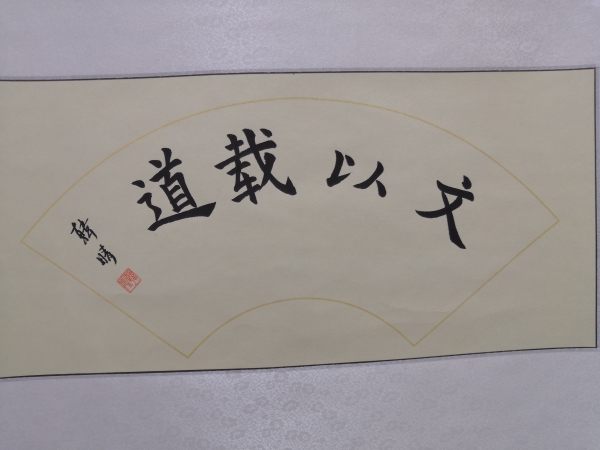 文以载道
韩晴